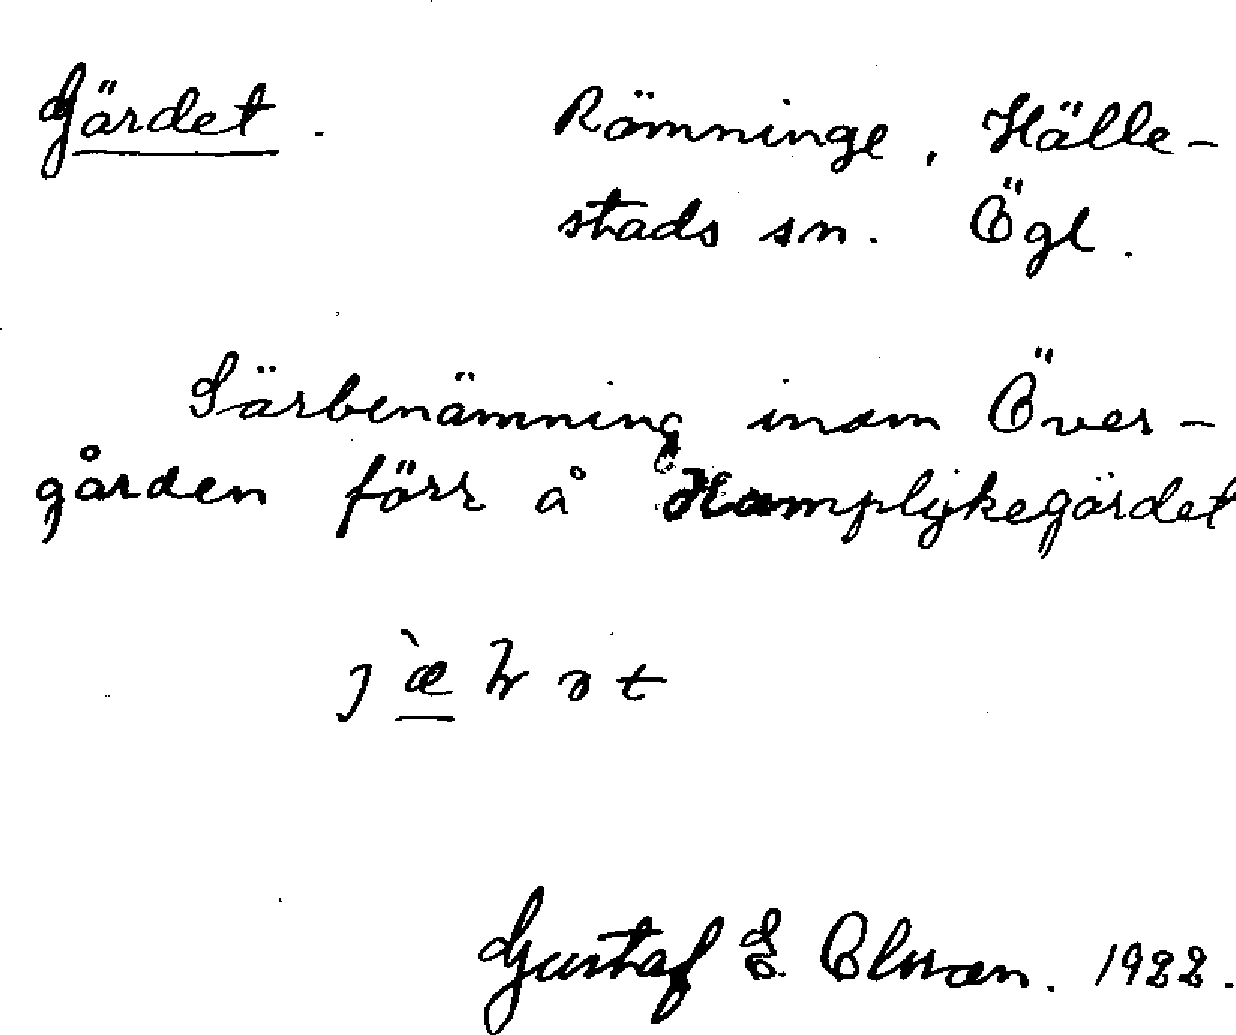 Gärdet. Römninge, Hälle-
stads sn. Ögl.
Särbenämning inom Över-
gården förr å Hamplykegärdet
Gustaf E Olsson. 1922.